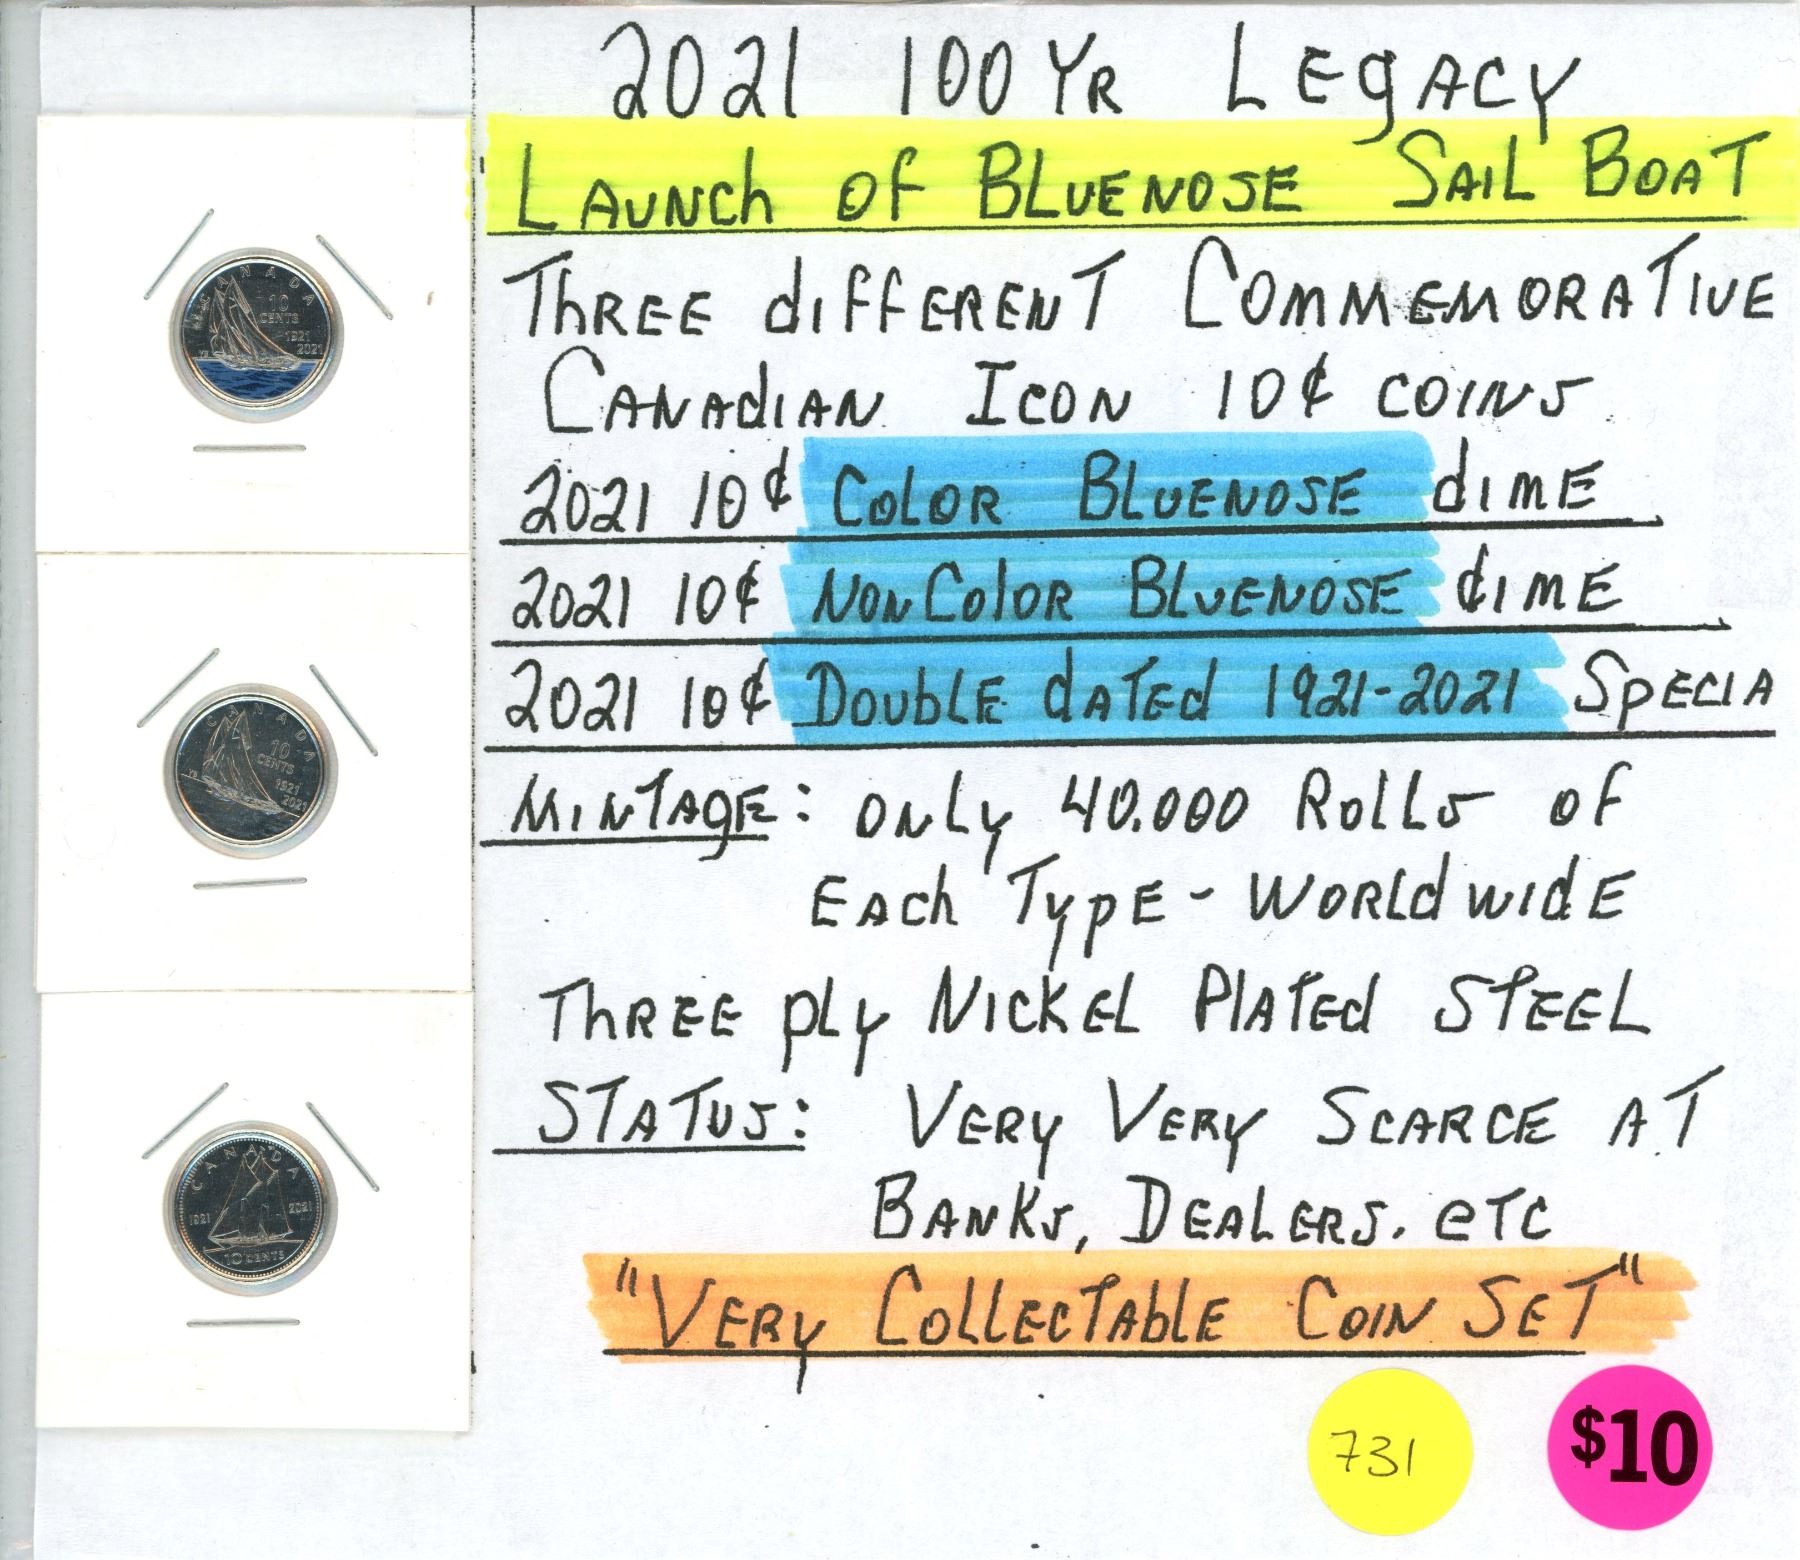 2021 100 YR LEGACY
LAUNCH OF BLUENOSE SAIL BOAT
THREE diffERENT COMMEMORATIVE
CANAdIAN ICON 10¢ COINS
2021 10¢ COLOR BLUENOSE dIME
2021 10¢ NON COLOR BLUENOSE dIME
2021 10¢ DOUBLE dATEd 1921-2021 SPECIA
MINTAGE: ONLY 40.000 ROLLS OF
EACh TYPE - WORLdWIdE
THREE PLY NICKEL PLATEd STEEL
STATUS: VERY VERY SCARCE AT
BANKS, DEALERS. ETC
"VERY COLLECTABLE COIN SET"
731
$10
CANADA
10
CENTS
1921
2021
YB
CANADA
10
CENTS
1921
2021
YB
CANADA
1921
2021
10 CENTS